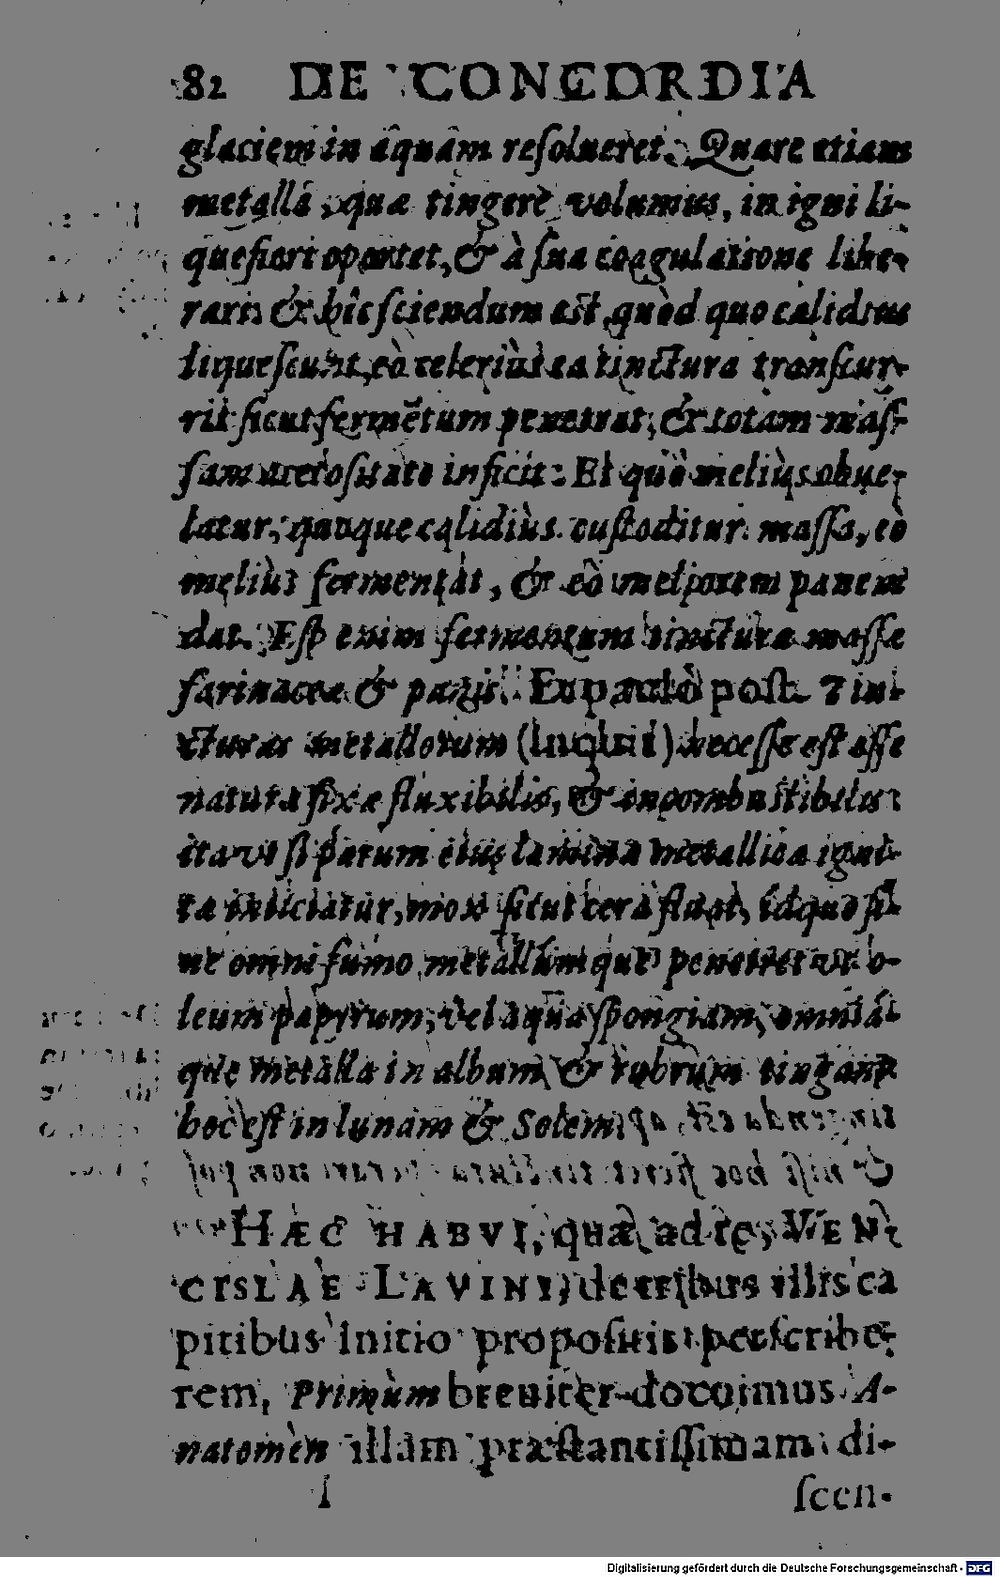 82 DE CONCORDIA
glaciem in aquam resolueret. Quare etiam
metalla, quæ tingere volumus, in igni li-
quefieri oportet, & à sua coagulatione libe-
rari. & hîc sciendum est, quòd quo calidius
liquescunt, eò celeriùs ea tinctura transcur-
rit sicut fermẽtum penetrat, & totam mas-
sam acetositate inficit: Et quò meliùs obue-
latur, quoque calidiùs custoditur massa, eò
meliùs fermentat, & eò meliorem panem
dat. Est enim fermentum tinctura massæ
farinaceæ & panis. Et paulò post. Tin-
cturas metallorum (inquit) necesse est esse
natura fixæ fluxibilis, & incombustibiles:
ita vt si parum eius laminæ metallicæ igni-
tæ iniiciatur, mox sicut cera fluat, idque si-
ne omni fumo, metallumque penetret vt o-
leum papyrum, vel aqua spongiam, omniá-
que metalla in album & rubrum tingant
hoc est in lunam & Solem.
HÆC HABVI, quæ ad te, VEN-
CISLAE LAVINI, de tribus illis ca
pitibus initio propositis perscribe-
rem, Primùm breuiter docuimus A-
natomèn illam præstantissimam di-
scen-
Digitalisierung gefördert durch die Deutsche Forschungsgemeinschaft - DFG